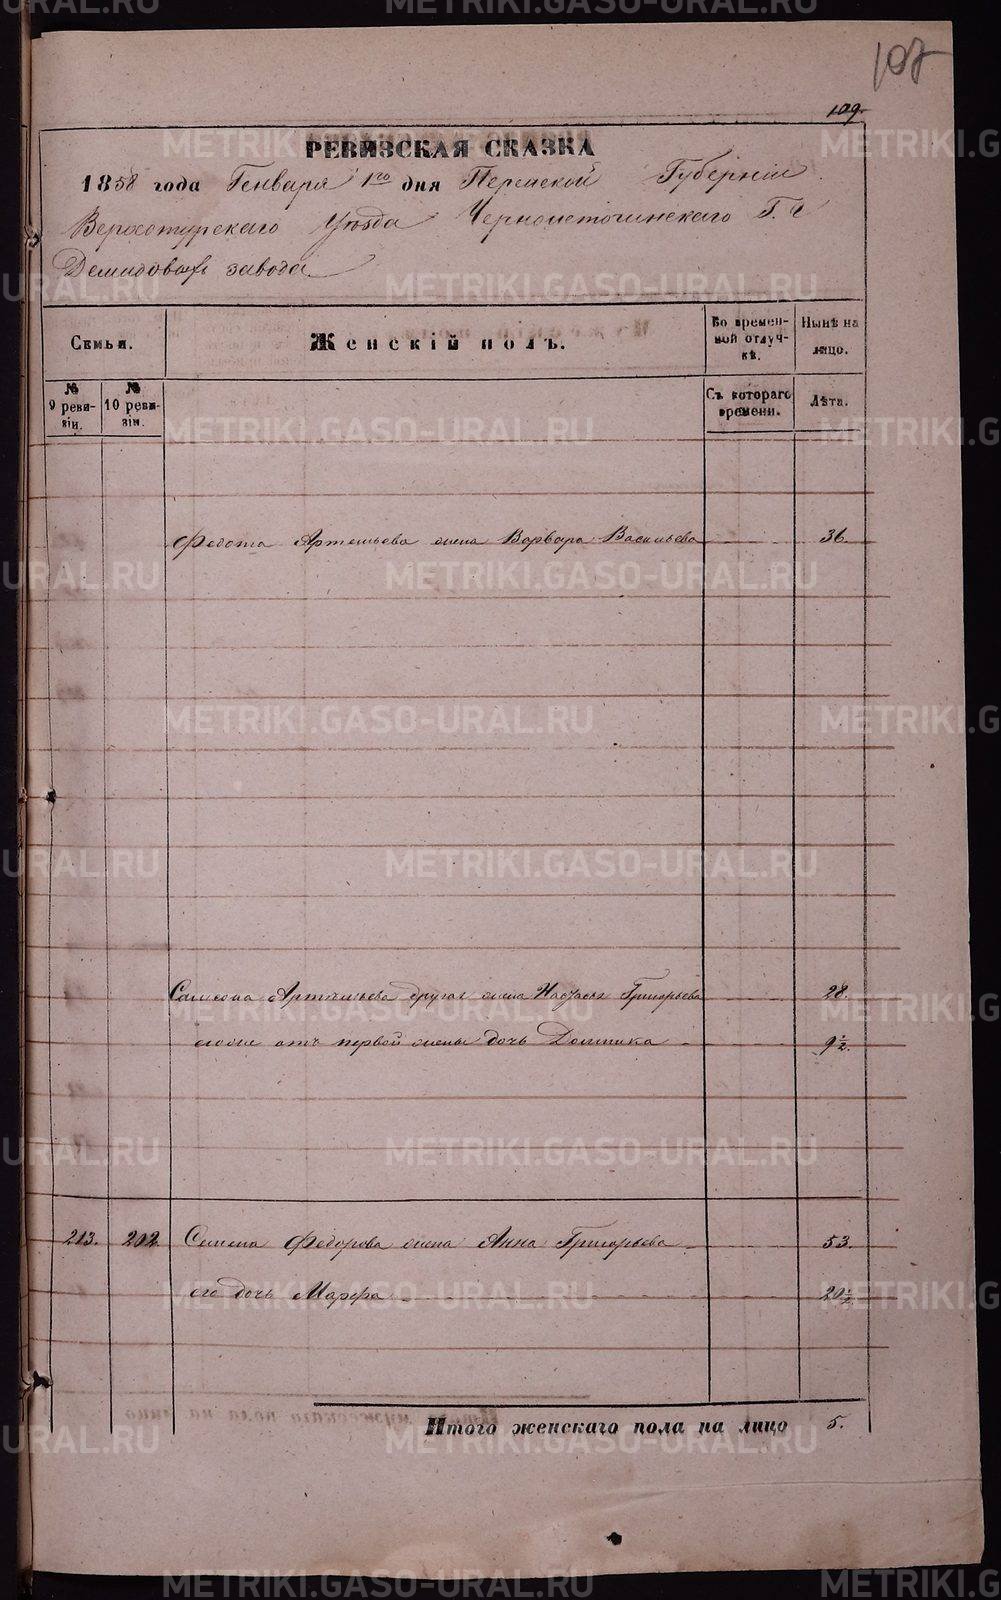 107
109.
РЕВИЗСКАЯ СКАЗКА
1858 года Генваря 1го дня Пермской Губернии
Верхотурскаго Уезда Черноисточинскаго Г.г.
Демидовых завода
Семьи.
Женскій полъ.
Во времен-
ной отлуч-
кѣ.
Нынѣ на
лицо.
№
9 реви-
зіи.
№
10 реви-
зіи.
Съ котораго
времени.
Лѣта.
Федота Артемьева жена Варвара Васильева 36.
Самсона Артемьева другая жена Настасья Григорьева 28.
его же отъ первой жены дочь Домника 9½.
213. 202. Семена Федорова жена Анна Григорьева 53.
его дочь Марфа 20½
Итого женскаго пола на лицо 5.
METRIKI.GASO-URAL.RU